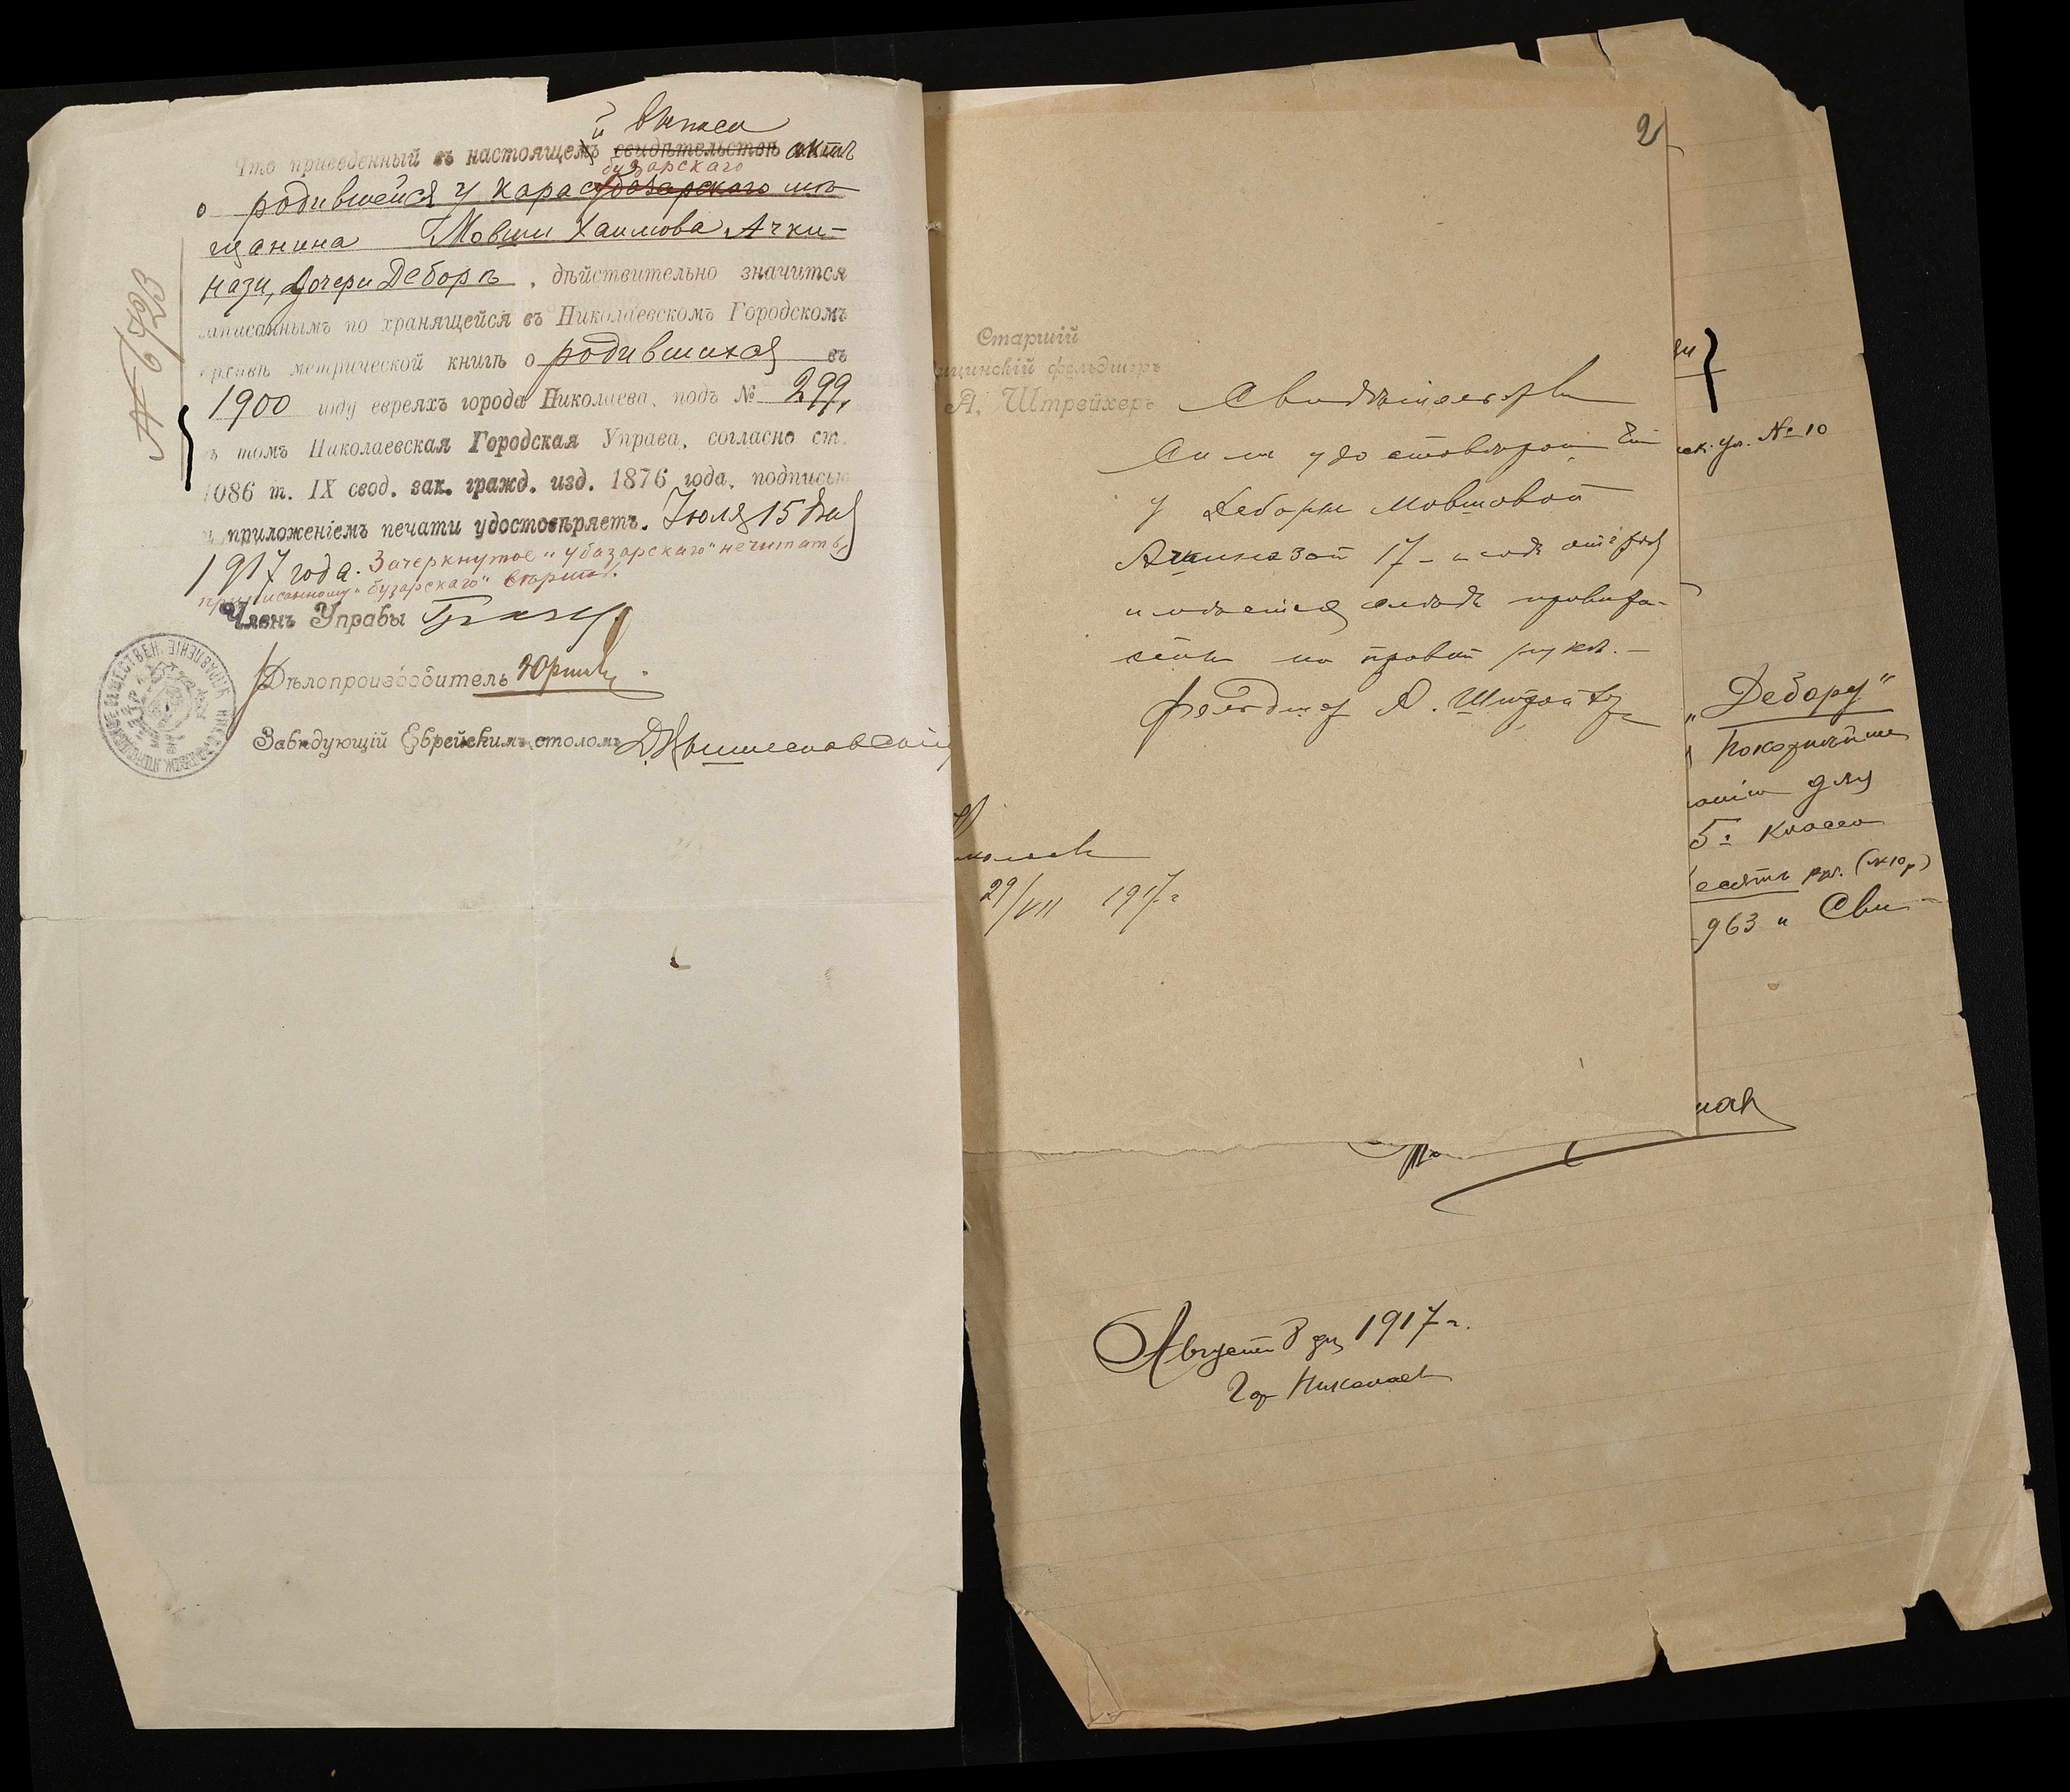 й выписи
Что приведенный въ настоящемъ свидѣтельствѣ актъ
бузарскаго
о родившейся у Карасубазарскаго мѣ-
щанина Мовши Хаимова Ачки-
нази, дочери Деборѣ, дѣйствительно значится
записаннымъ по хранящейся въ Николаевскомъ Городскомъ
архивѣ метрической книгѣ о родившихся въ
1900 году евреяхъ города Николаева, подъ № 299,
въ томъ Николаевская Городская Управа, согласно ст.
1086 т. IX свод. зак. гражд. изд. 1876 года, подписью
и приложеніемъ печати удостовѣряетъ. Іюля 15 дня
1917 года. Зачеркнутое „убазарскаго" не читать,
приписанному „бузарскаго" вѣрить.
Членъ Управы
Дѣлопроизводитель
Завѣдующій Еврейскимъ столомъ
№ 6723
2
Старшій
медицинскій фельдшеръ
А. Штрейхеръ
Свидѣтельство
Симъ удостовѣряю что
у Деборы Мовшовой
Ачкинази 17-и лѣтъ отъ роду
имѣется слѣдъ привитой
оспы на правой рукѣ. –
Фельдшеръ А. Штрейхеръ
Николаевъ
29/VII 1917 г.
ск. ул. № 10
„Дебору"
Покорнѣйше
для
5й класса
десять руб. (10 р)
963 и Сви-
Августа 8 дня 1917 г.
Гор Николаевъ